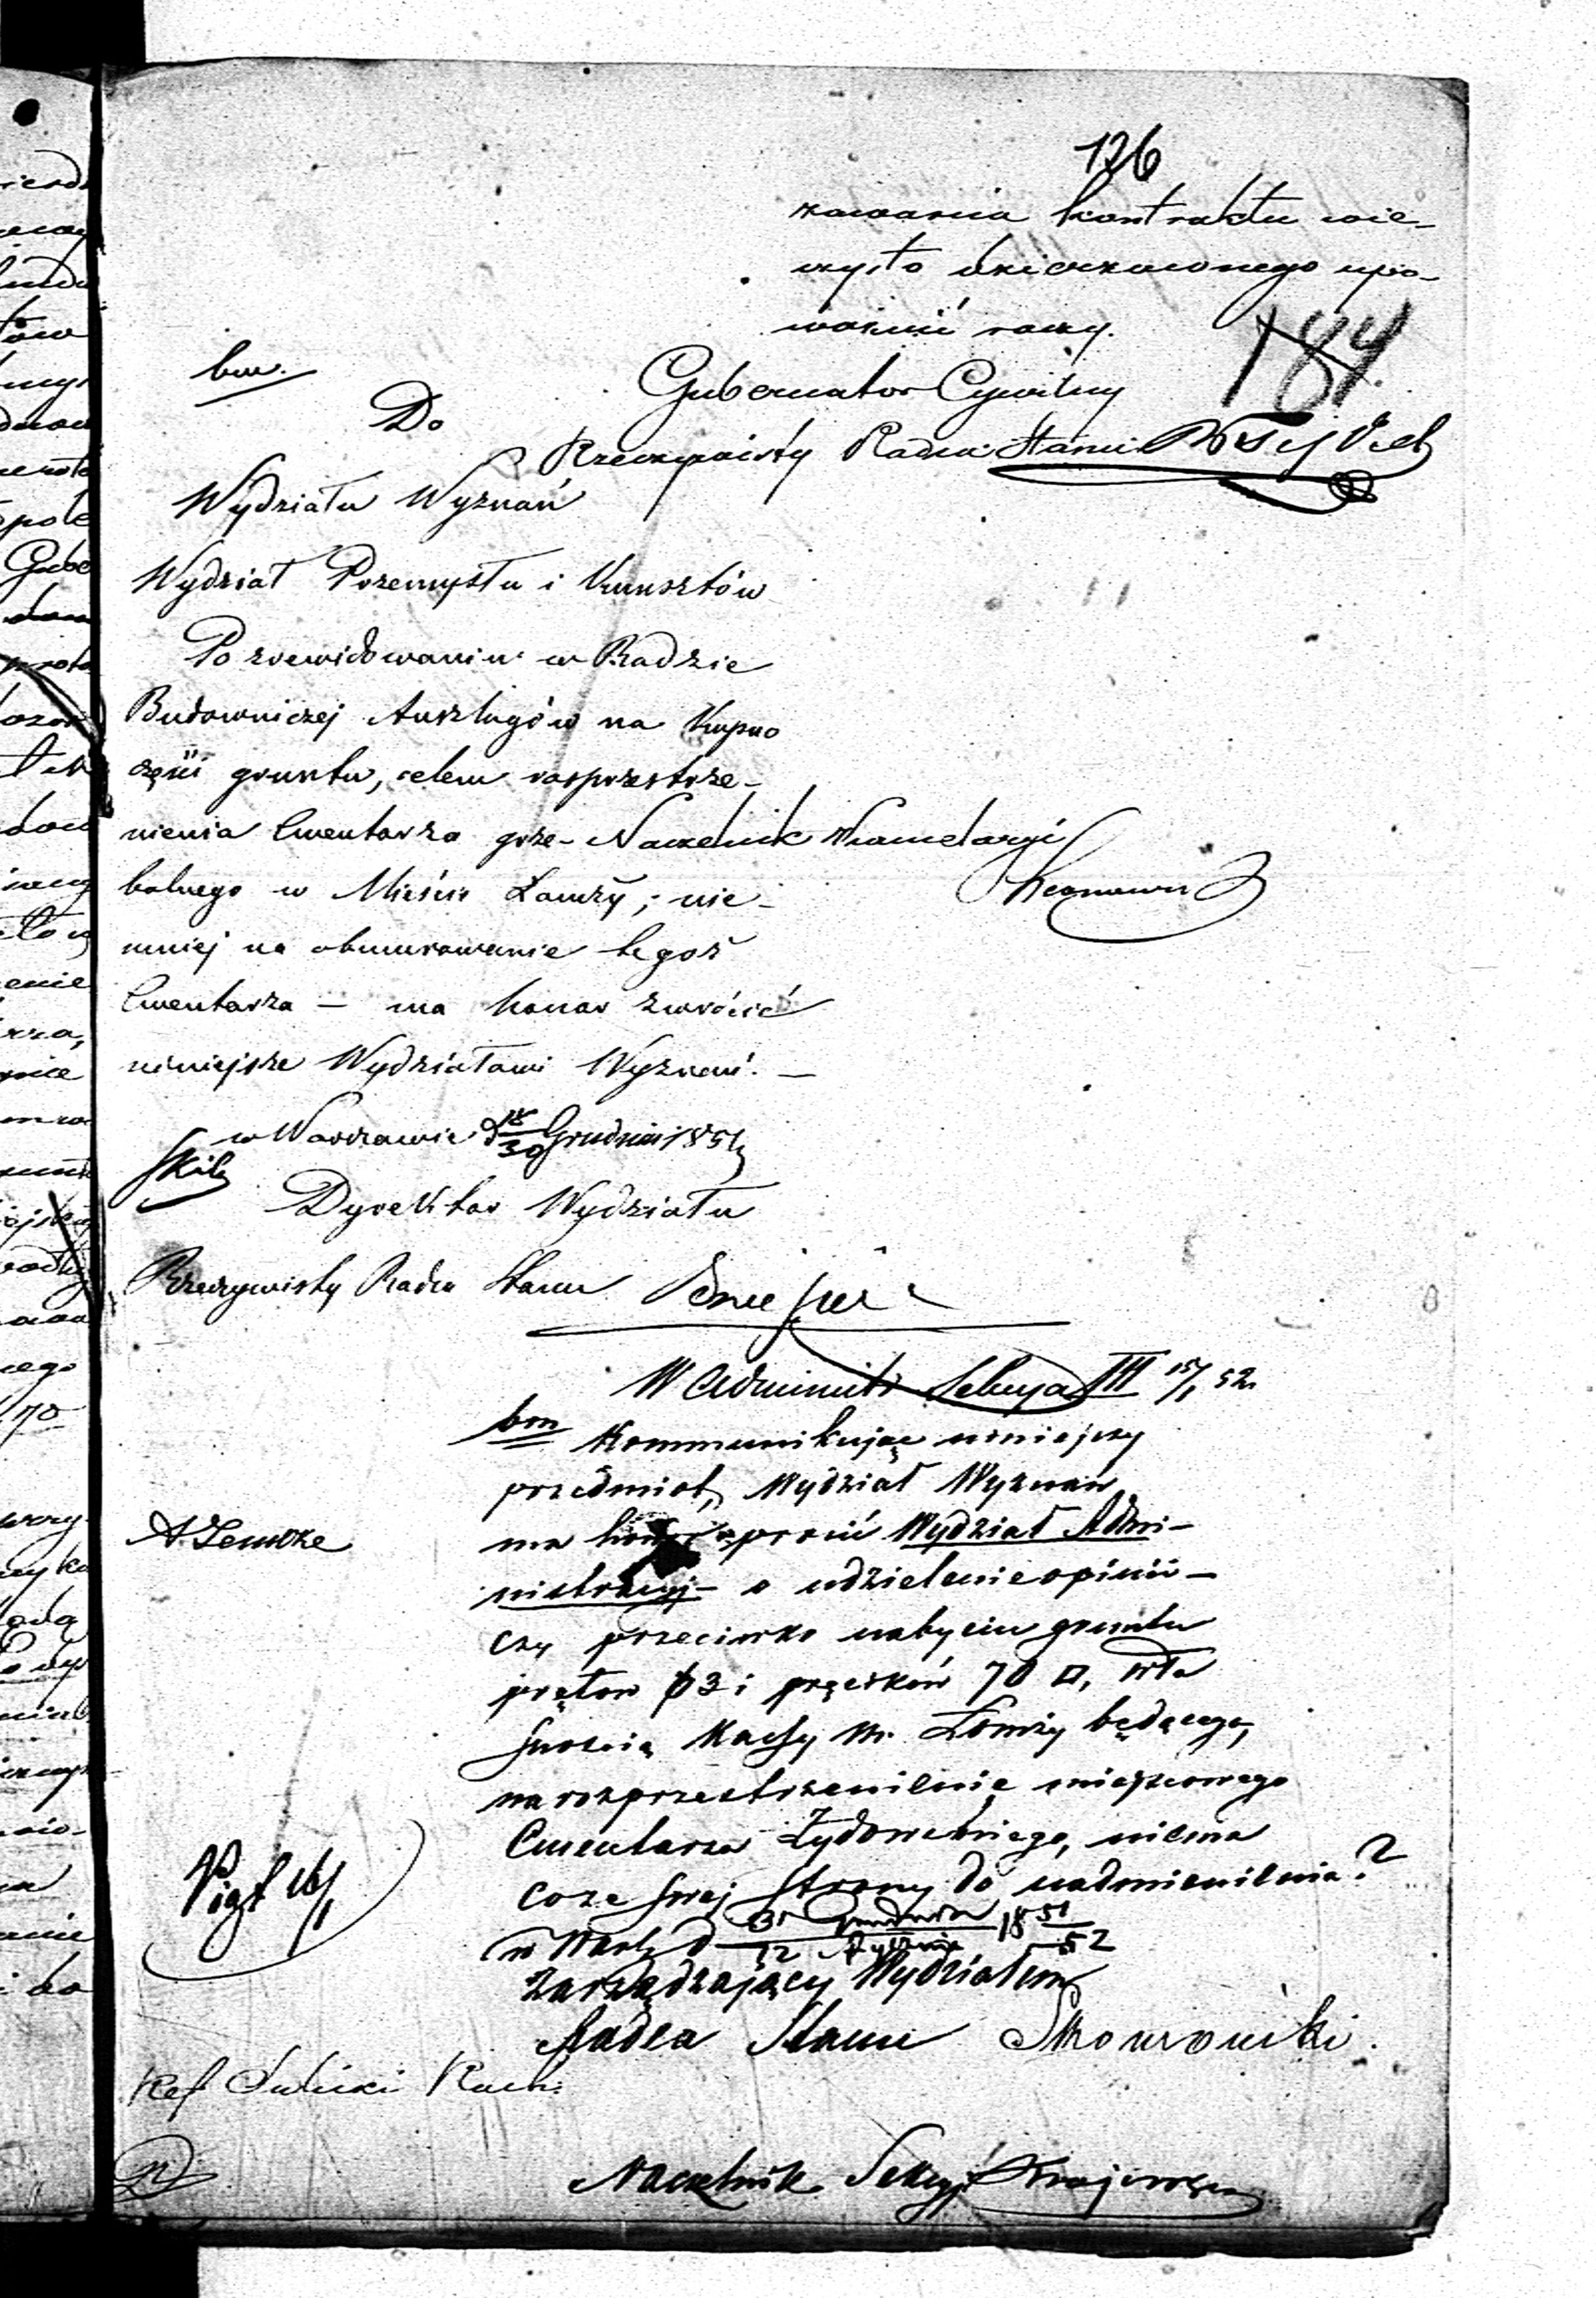 126
zawarcia kontraktu wie-
czysto dzierżawnego upo-
ważnić raczy.
184
Gubernator Cywilny
Rzeczywisty Radca Stanu
bm.
Do
Wydziału Wyznań
Wydział Przemysłu i Kunsztów
Po zrewidowaniu w Radzie
Budowniczej Anszlagów na Kupno
części gruntu, celem rosprzestrze-
nienia Cmentarza grze-
balnego w Mieście Łomży; nie-
mniej na obmurowanie tegoż
Cmentarza — ma honor zwrócić
niniejsze Wydziałowi Wyznań. —
Naczelnik Kancelaryi
w Warszawie d 18/30 Grudnia 1851
Dyrektor Wydziału
Rzeczywisty Radca Stanu
W Administr Sekcya III 15/1 52
bm
Kommunikując niniejszy
przedmiot, Wydział Wyznań
ma honor prosić Wydział Admi-
nistracyj — o udzielenie opinii —
czy przeciwko nabyciu gruntu
prętow 3 i pręcików 70 □, wła
snością Kassy M. Łomży będącego,
na rozprzestrzenienie miejscowego
Cmentarza Żydowskiego, niema
co ze swej strony do nadmienienia?
w Warsz d 31 Grudnia / 12 Stycznia 18 51/52
Zarządzający Wydziałem
Radca Stanu
A. Lemcke
Ref
Naczelnik Sekcyi